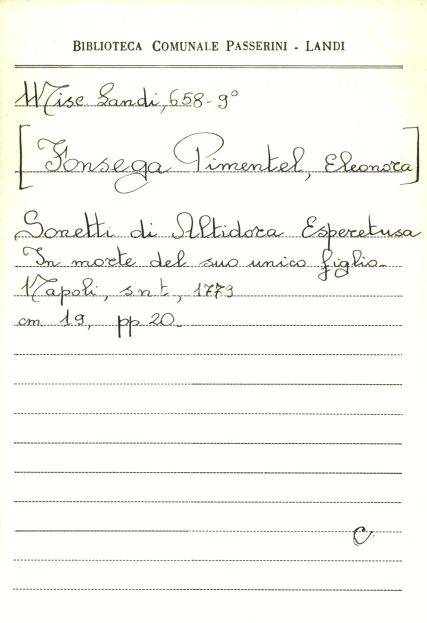 BIBLIOTECA COMUNALE PASSERINI - LANDI
Misc. Landi, 658-9°
[Fonsega Pimentel, Eleonora]
Sonetti di Altidora Esperetusa
In morte del suo unico figlio.
Napoli, s.n.t., 1779
cm 19, pp 20.
C